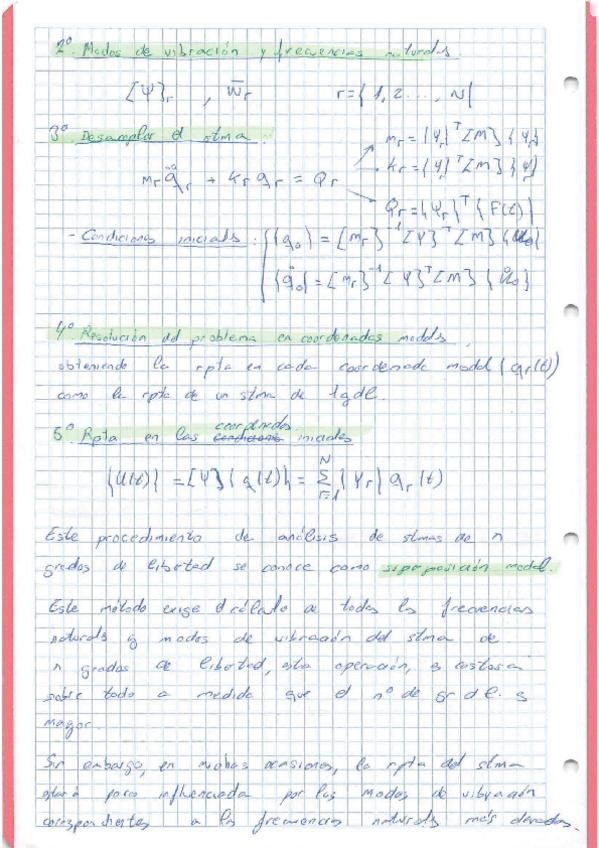 2º. Modos de vibración y frecuencias naturales
[Ψ]r , w̄r r={1,2...., N}
3º. Desamplar el stma.
mr = {Ψr}ᵀ[M]{Ψr}
mr q̈r + kr qr = Qr
kr = {Ψr}ᵀ[M]{Ψr}
Qr = {Ψr}ᵀ{F(t)}
- Condiciones iniciales : {q₀} = [mr]⁻¹[Ψ]ᵀ[M]{u₀}
{q̇₀} = [mr]⁻¹[Ψ]ᵀ[M]{u̇₀}
4º Resolución del problema en coordenadas modales,
obteniendo la rpta en cada coordenada modal (qr(t))
como la rpta de un stma de 1gdl.
5º. Rpta en las coordenadas iniciales
{u(t)} = [Ψ]{q(t)} = Σ r=1 N {Ψr} qr(t)
Este procedimiento de análisis de stmas de n
grados de libertad se conoce como superposición modal.
Este método exige el cálculo de todas las frecuencias
naturales y modos de vibración del stma de
n grados de libertad, esta operación, es costosa
sobre todo a medida que el nº de gr de l. es
mayor.
Sin embargo, en muchas ocasiones, la rpta del stma
estará poco influenciada por los modos de vibración
correspondientes a las frecuencias naturales más elevadas.